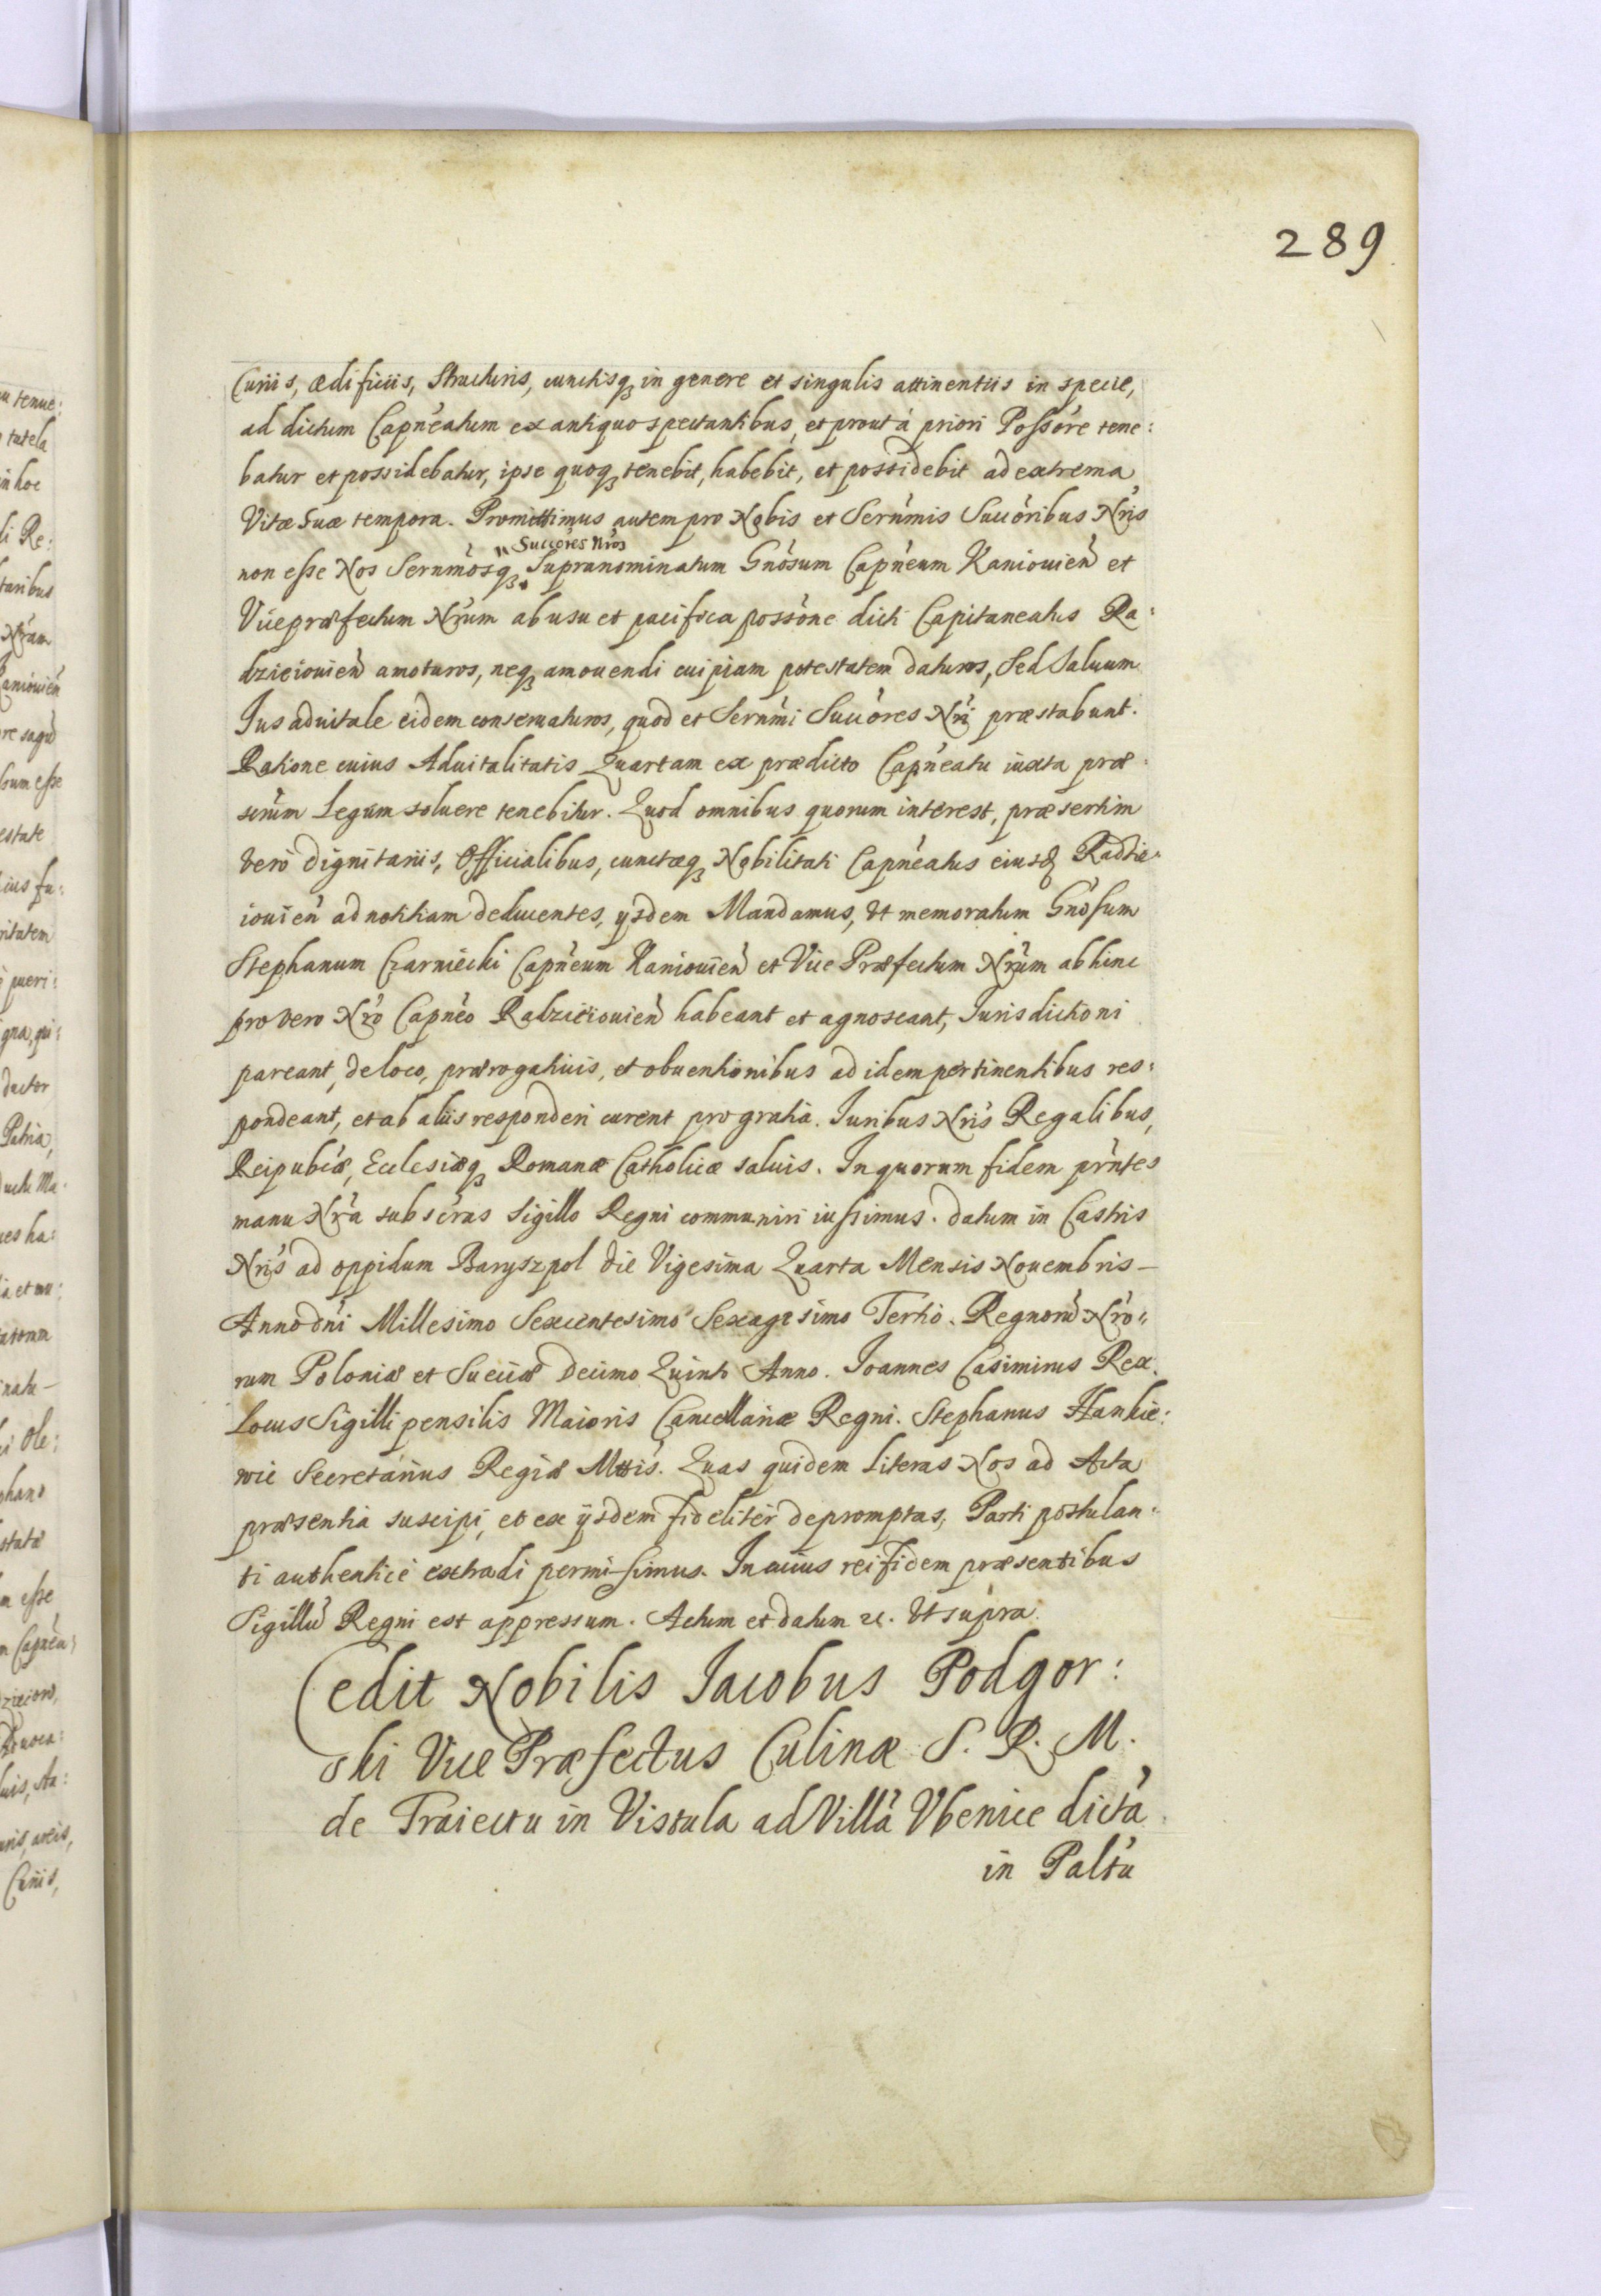 289
Curiis, ædificiis, Structuris, cunctisq₃ in genere et singulis attinentiis in specie,
ad dictum Capnéatum ex antiquo spectantibus, et prout à priori Possóre tene:
batur et possidebatur, ipse quoq₃ tenebit, habebit, et possidebit ad extrema
Vitæ Suæ tempora. Promittimus autem pro Nobis et Sernm̀is Succòribus Nr̀is
Succòres Nròs
non esse Nos Sernmòsq₃ Supranominatum Gnòsum Capnèum Kaniouien̄ et
Vicepræfectum Nrùm ab usu et pacifica possòne dicti Capitaneatus Ra:
dzieiouien̄ amoturos, neq₃ amouendi cuipiam potestatem daturos, Sed Saluum
Jus aduitale eidem conseruaturos, quod et Sernm̀i Succòres Nr̀i præstabunt.
Ratione cuius Aduitalitatis Quartam ex prædicto Capnèatu iuxta præ:
scrùm Legum soluere tenebitur. Quod omnibus quorum interest, præsertim
verò dignitariis, Officialibus, cunctæq₃ Nobilitati Capnéatus eiusd Radzie:
iouien̄ ad notitiam deducentes, ysdem Mandamus, Vt memoratum Gnòsum
Stephanum Czarniecki Capnèum Kaniouien̄ et Vice Præfectum Nrùm abhinc
pro vero Nrò Capnèo Radzieiouien̄ habeant et agnoscant, Jurisdictioni
pareant, de loco, prærogatiuis, et obuentionibus ad idem pertinentibus res:
pondeant, et ab aliis responderi curent pro gratia. Juribus Nr̀is Regalibus,
Reipubcæ, Ecclesiæq₃ Romanæ Catholicæ saluis. In quorum fidem pr̀ntes
manu Nr̀a subscràs Sigillo Regni communiri iussimus. datum in Castris
Nr̀is ad oppidum Baryszpol die Vigesima Quarta Mensis Nouembris –
Anno dn̄i Millesimo Sexcentesimo Sexagesimo Tertio. Regnorū Nrò:
rum Poloniæ et Sueciæ decimo Quinto Anno. Joannes Casimirus Rex.
Locus Sigilli pensilis Maioris Cancellariæ Regni. Stephanus Hankie:
wic Secretarius Regiæ Mttis. Quas quidem Literas Nos ad Acta
præsentia suscipi, et ex ysdem fideliter depromptas, Parti postulan:
ti authenticè extradi permissimus. In cuius rei fidem præsentibus
Sigillū Regni est appressum. Actum et datum &c. Vt supra.
Cedit Nobilis Jacobus Podgor:
ski Vice Præfectus Culinæ S. R. M.
de Traiectu in Vistula ad Villā Vbenice dictā
in Paltū